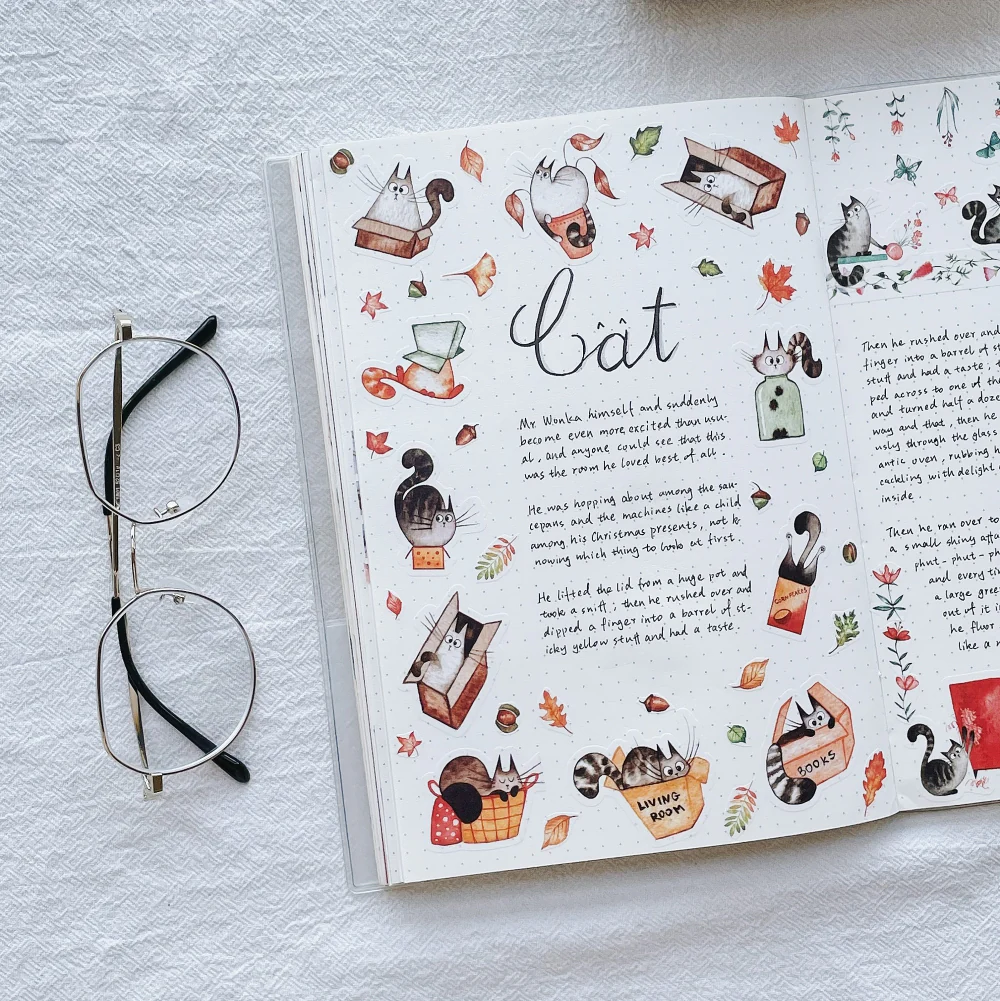 Cât
Mr. Wonka himself and suddenly
become even more excited than usu-
al, and anyone could see that this
was the room he loved best of all.
He was hopping about among the sau-
cepans and the machines like a child
among his Christmas presents, not k-
nowing which thing to look at first.
He lifted the lid from a huge pot and
took a sniff; then he rushed over and
dipped a finger into a barrel of st-
icky yellow stuff and had a taste.
CORN FLAKES
BOOKS
LIVING
ROOM
Then he rushed over and
finger into a barrel of st
stuff and had a taste; t
ped across to one of th
and turned half a doze
way and that, then he
usly through the glass
antic oven, rubbing h
cackling with delight
inside.
Then he ran over to
a small shiny affa
phut-phut-ph
and every tim
a large gree
out of it i
he fluor
like a m